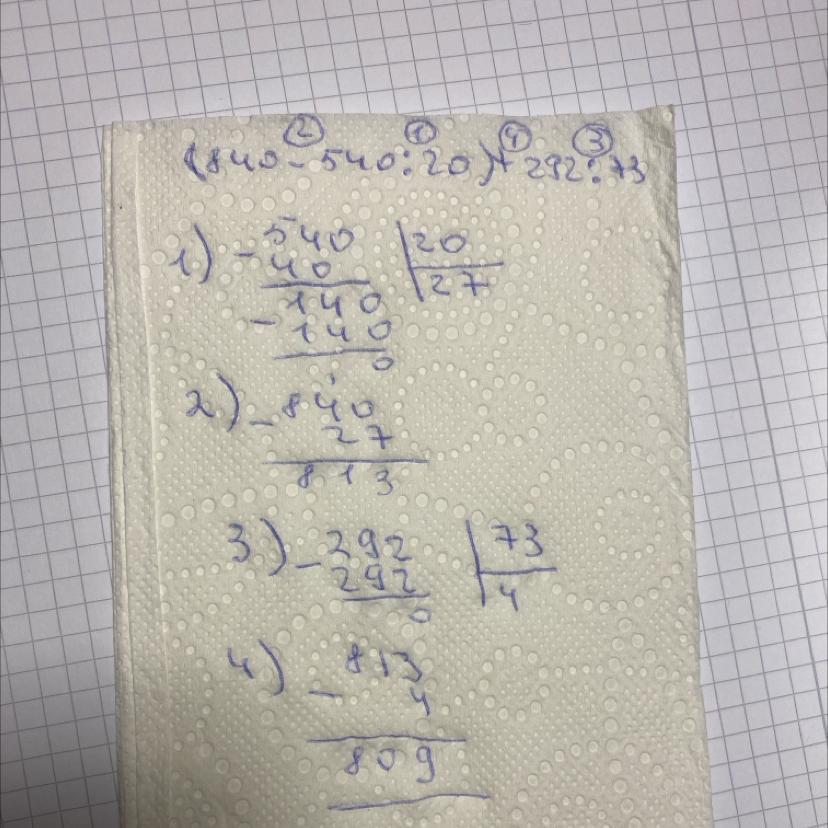 ② ① ④ ③
(840 - 540 : 20) + 292 : 73
1) - 540 | 20
40 | 27
140
- 140
0
2) - 840
27
813
3) - 292 | 73
292 | 4
0
4) - 813
4
809